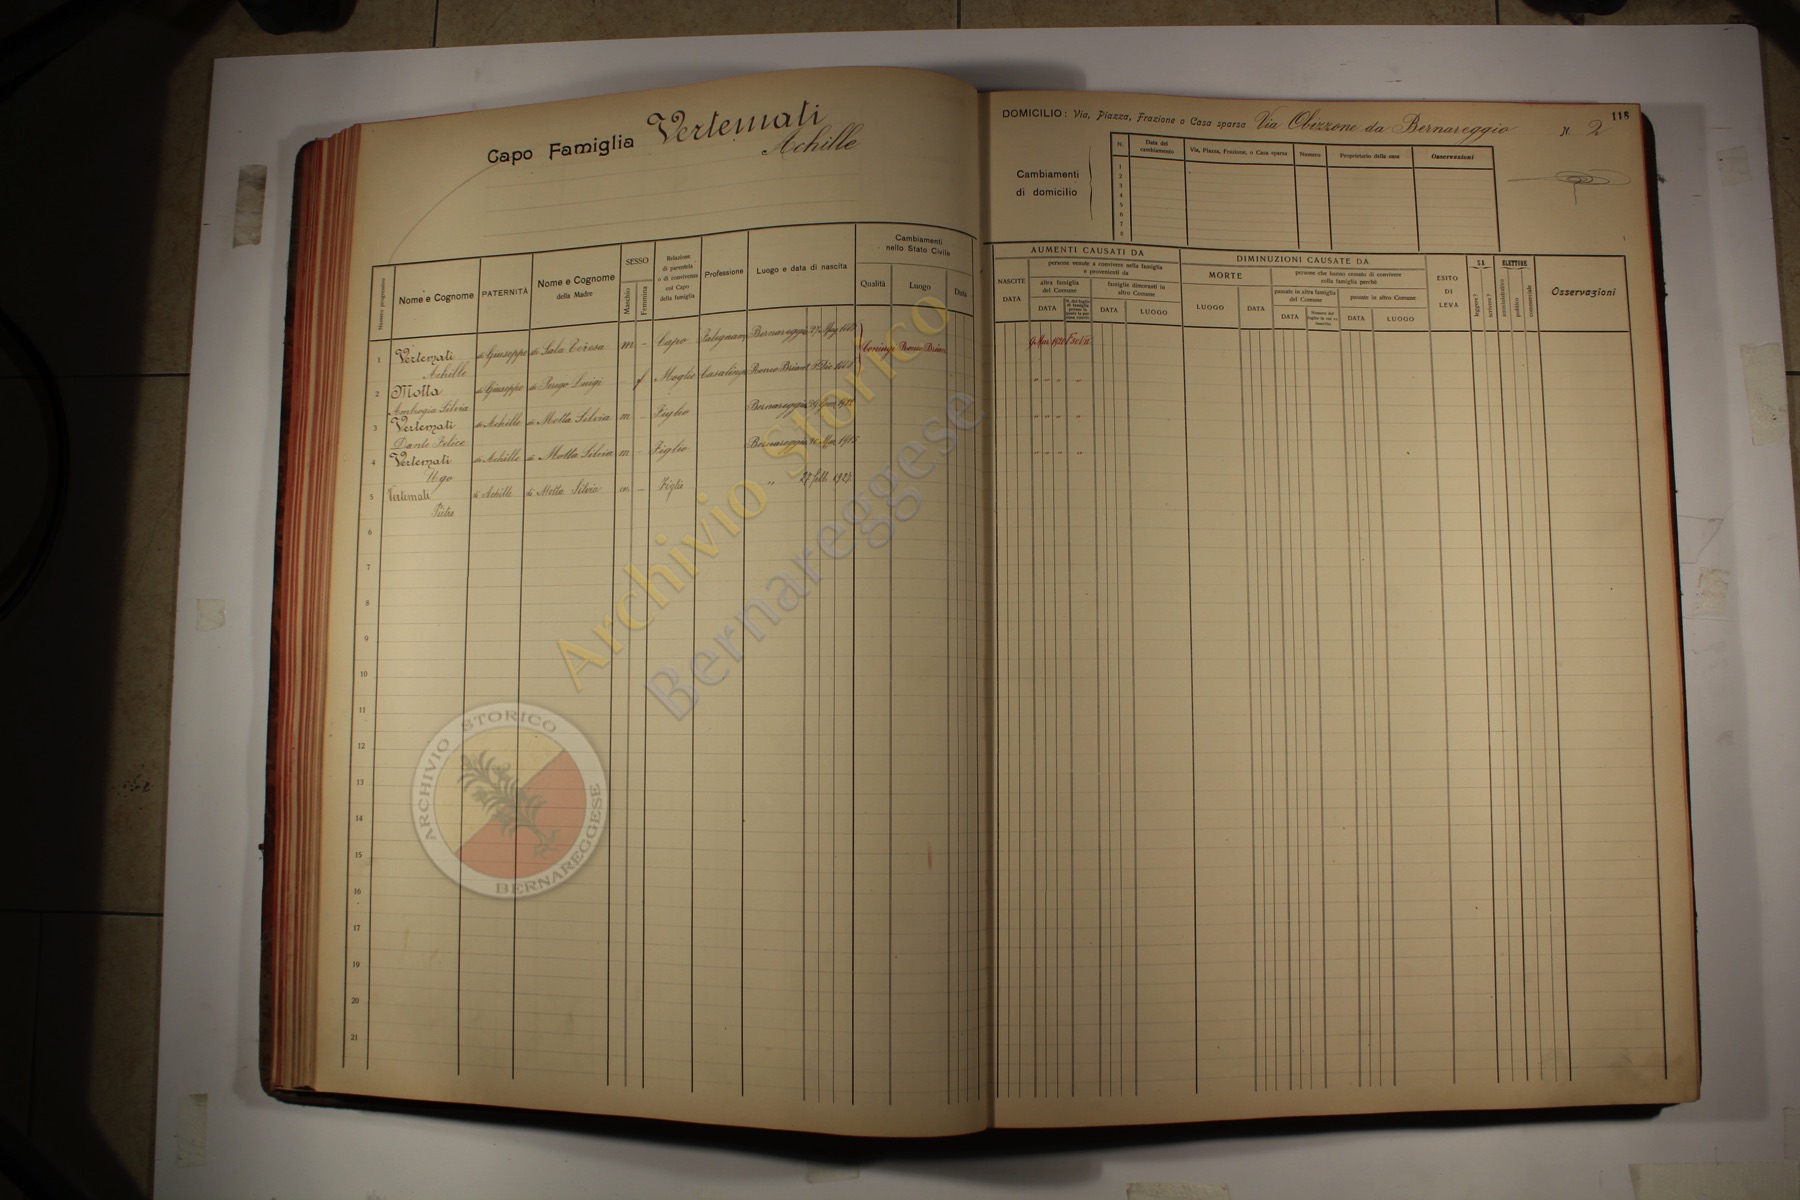 Capo Famiglia Vertemati
Achille
118
DOMICILIO: Via, Piazza, Frazione o Casa sparsa Via Obizzone da Bernareggio N. 2
Cambiamenti
di domicilio
N. Data del cambiamento Via, Piazza, Frazione, o Casa sparsa Numero Proprietario della casa Osservazioni
1
2
3
4
5
6
7
8
Numero progressivo
Nome e Cognome
PATERNITÀ
Nome e Cognome
della Madre
SESSO
Maschio
Femmina
Relazione
di parentela
o di convivenza
col Capo
della famiglia
Professione
Luogo e data di nascita
Cambiamenti
nello Stato Civile
Qualità Luogo Data
AUMENTI CAUSATI DA
NASCITE
DATA
persone venute a convivere nella famiglia
e provenienti da
altra famiglia
del Comune
DATA
famiglie dimoranti in
altro Comune
DATA LUOGO
DIMINUZIONI CAUSATE DA
MORTE
LUOGO DATA
persone che hanno cessato di convivere
colla famiglia perchè
passate in altra famiglia
del Comune
DATA
passate in altro Comune
DATA LUOGO
ESITO
DI
LEVA
SA
leggere?
scrivere?
ELETTORE
amministrativo
politico
commerciale
Osservazioni
1 Vertemati di Giuseppe di Sala Teresa m - Capo Falegname Bernareggio
Achille
2 Motta di Giuseppe di Perego Luigi - f Moglie Casalinga Ronco Briant.
Ambrogia Silvia
3 Vertemati di Achille di Motta Silvia m - Figlio Bernareggio
Dante Felice
4 Vertemati di Achille di Motta Silvia m - Figlio Bernareggio
Ugo
5 Vertemati di Achille di Motta Silvia m - Figlio " 27 febb. 1923
6
7
8
9
10
11
12
13
14
15
16
17
18
19
20
21
Archivio Storico
Bernareggese
ARCHIVIO STORICO
BERNAREGGESE